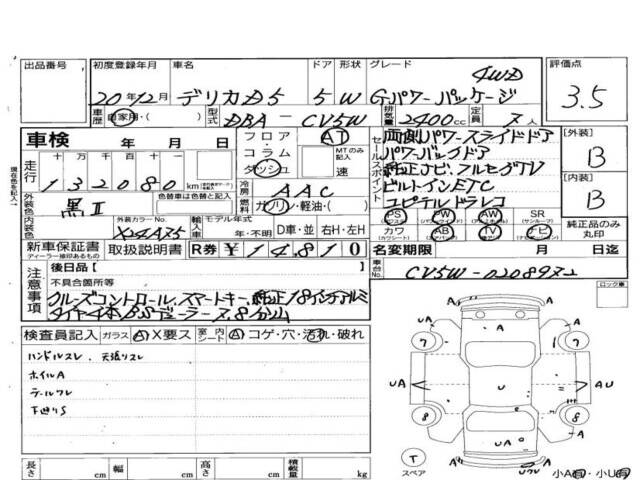 出品番号 初度登録年月 車名 ドア 形状 グレード 評価点
20年12月 デリカD5 5 W Gパワーパッケージ 4WD 3.5
車歴 自家用・( ) 型式 DBA-CV5W 排気量 2400cc 定員 人
車検 年 月 日
フロア・コラム・ダッシュ AT MTのみ記入 速
セールスポイント
両側パワースライドドア
パワーバックドア
純正ナビ、フルセグTV
ビルトインETC
ユピテルドラレコ
[外装] B
[内装] B
走行 十 万 千 百 十 一
132080 km
冷房 AAC
燃料 ガソリン・軽油・( )
外装色 黒II 色替車は色替前の色を記入
内装色 外装カラーNo. X42A75
輸入車 モデル年式 年・不明 D車・並 右H・左H
PS PW AW SR
カワ AB TV ナビ
純正品のみ丸印
新車保証書 取扱説明書 R券 ¥14,810
ディーラー捺印あるもの
名変期限 月 日迄
車台No. CV5W-0208972
注意事項
後日品[ ]
不具合箇所等
クルーズコントロール、スマートキー、純正18インチアルミ
検査員記入 ガラス A・X要ス 室内シート A・コゲ・穴・汚れ・破れ
ハンドルスレ、天張りスレ
ホイルA
テールワレ
下廻りS
長さ cm 幅 cm 高さ cm 積載量 kg
ロック車
UA A A A
7 7
UA U AU
8 8
UA
A A
Uワレ
T
スペア
小A有・小U有